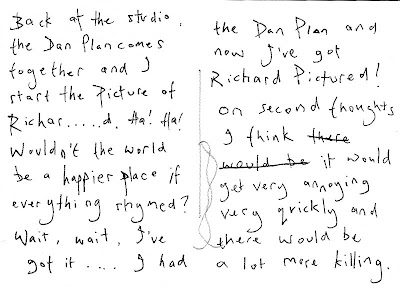 Back at the studio,
the Dan Plan comes
together and I
start the Picture of
Richar.....d. Ha! Ha!
Wouldn't the world
be a happier place if
everything rhymed?
Wait, wait, I've
got it .... I had
the Dan Plan and
now I've got
Richard Pictured!
on second thoughts
I think there
would be it would
get very annoying
very quickly and
there would be
a lot more killing.